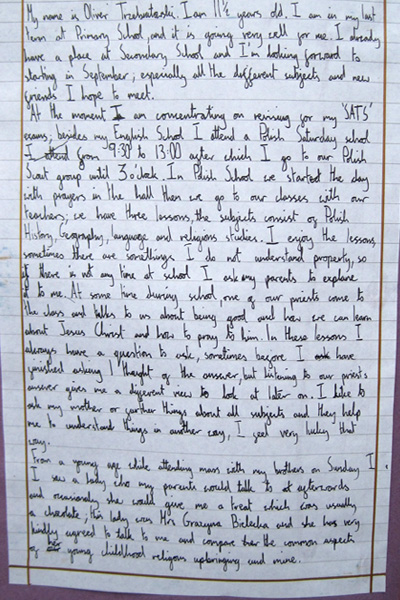 My name is Oliver I am 11½ years old. I am in my last
term at Primary School, and it is going very well for me. I already
have a place at Secondary School and I'm looking forward to
starting in September; especially all the different subjects and new
friends I hope to meet.
At the moment I am concentrating on revising for my 'SATS'
exams; besides my English School I attend a Polish Saturday school
I attend from 9:30 to 13:00 after which I go to our Polish
Scout group until 3 o'clock. In Polish School we started the day
with prayers in the hall then we go to our classes with our
teachers; we have three lessons, the subjects consist of Polish
History, Geography, language and religious studies. I enjoy the lessons,
sometimes there are somethings I do not understand property, so
if there is not any time at school I ask my parents to explane
it to me. At some time during school, one of our priests come to
the class and talks to us about being good and how we can learn
about Jesus Christ and how to pray to him. In these lessons I
always have a question to ask, sometimes before I have
finished asking I thought of the answer, but listening to our priests
answer gives me a different view to look at later on. I like to
ask my mother or farther things about all subjects and they help
me to understand things in another way, I feel very lucky that
way.
From a young age while attending mass with my brothers on Sunday I
I saw a lady who my parents would talk to afterwords
and occasionly she would give me a treat which was usually
a chocolate; this lady was Mrs Grazyna Bielecka and she has very
kindly agreed to talk to me and compare the common aspects
of young childhood religious upbringing and mine.